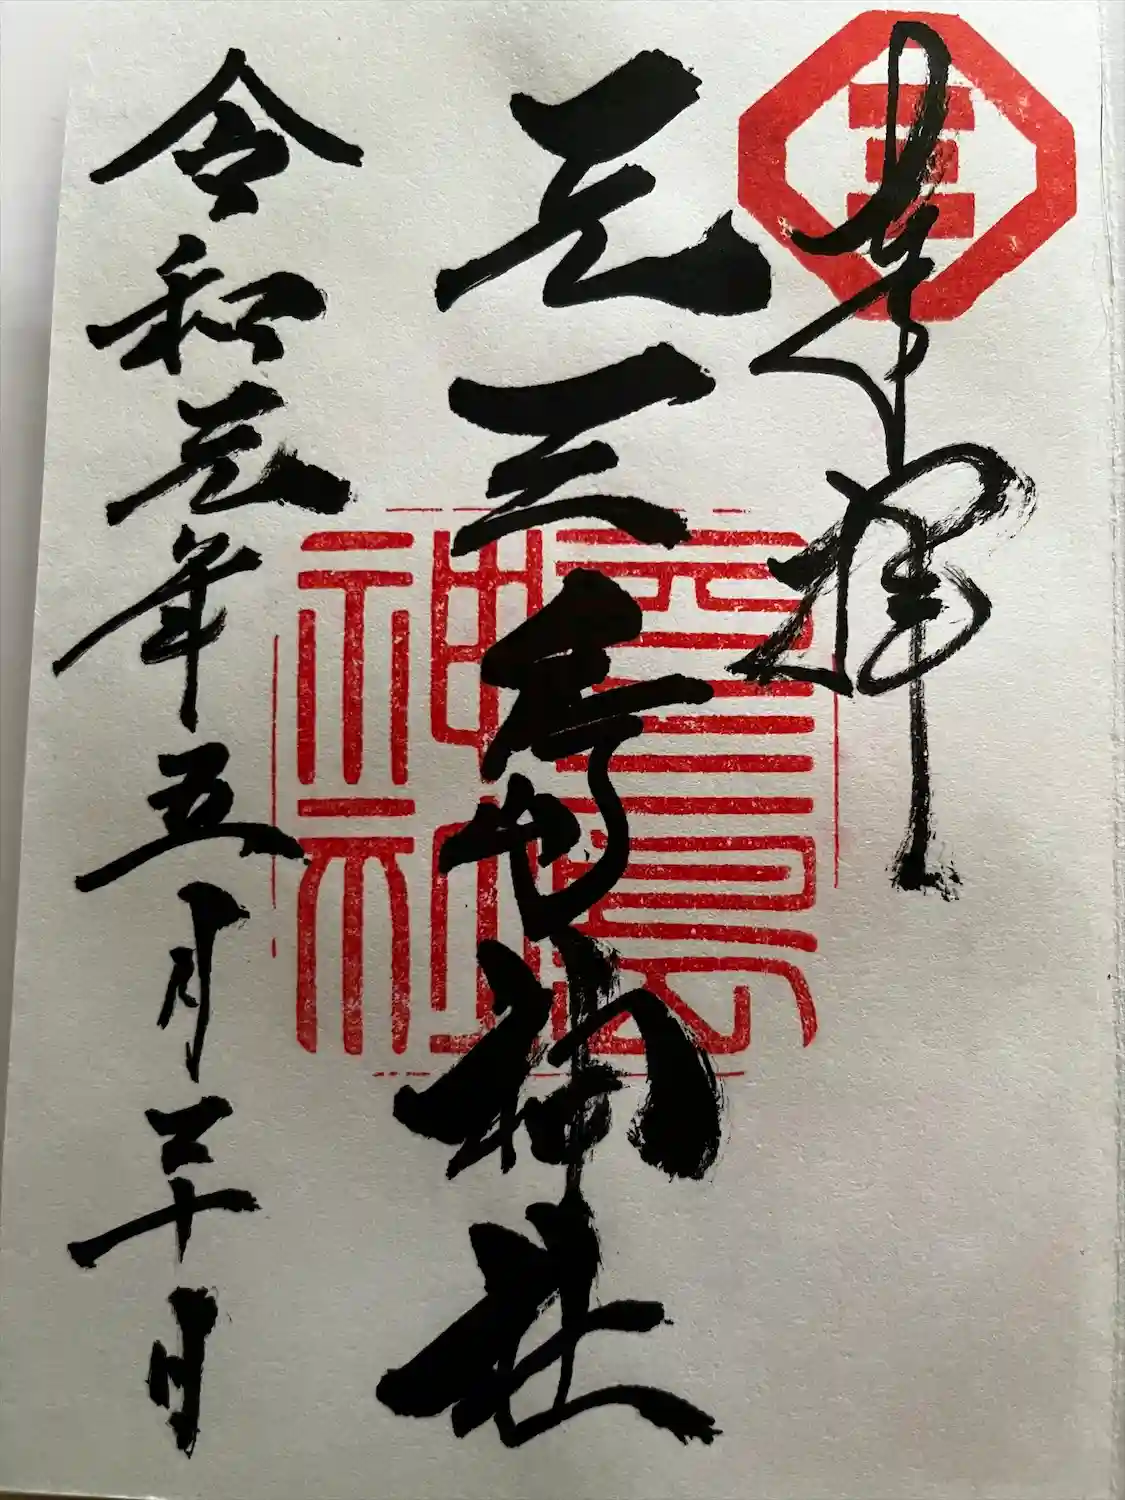 奉拝
元三島神社
令和元年五月二十日
三
元三島
神社